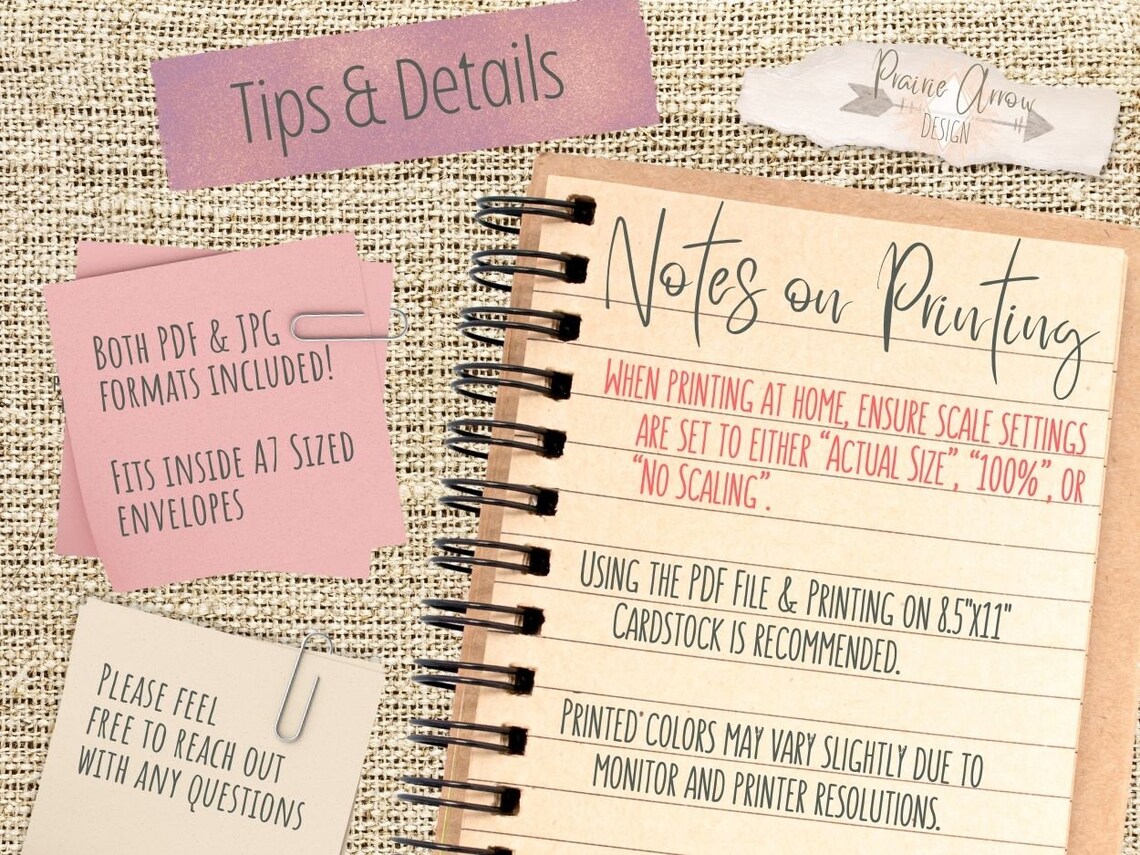 Tips & Details
Prairie Arrow
DESIGN
Notes on Printing
WHEN PRINTING AT HOME, ENSURE SCALE SETTINGS
ARE SET TO EITHER “ACTUAL SIZE”, “100%”, OR
“NO SCALING”.
USING THE PDF FILE & PRINTING ON 8.5"X11"
CARDSTOCK IS RECOMMENDED.
PRINTED COLORS MAY VARY SLIGHTLY DUE TO
MONITOR AND PRINTER RESOLUTIONS.
BOTH PDF & JPG
FORMATS INCLUDED!
FITS INSIDE A7 SIZED
ENVELOPES
PLEASE FEEL
FREE TO REACH OUT
WITH ANY QUESTIONS